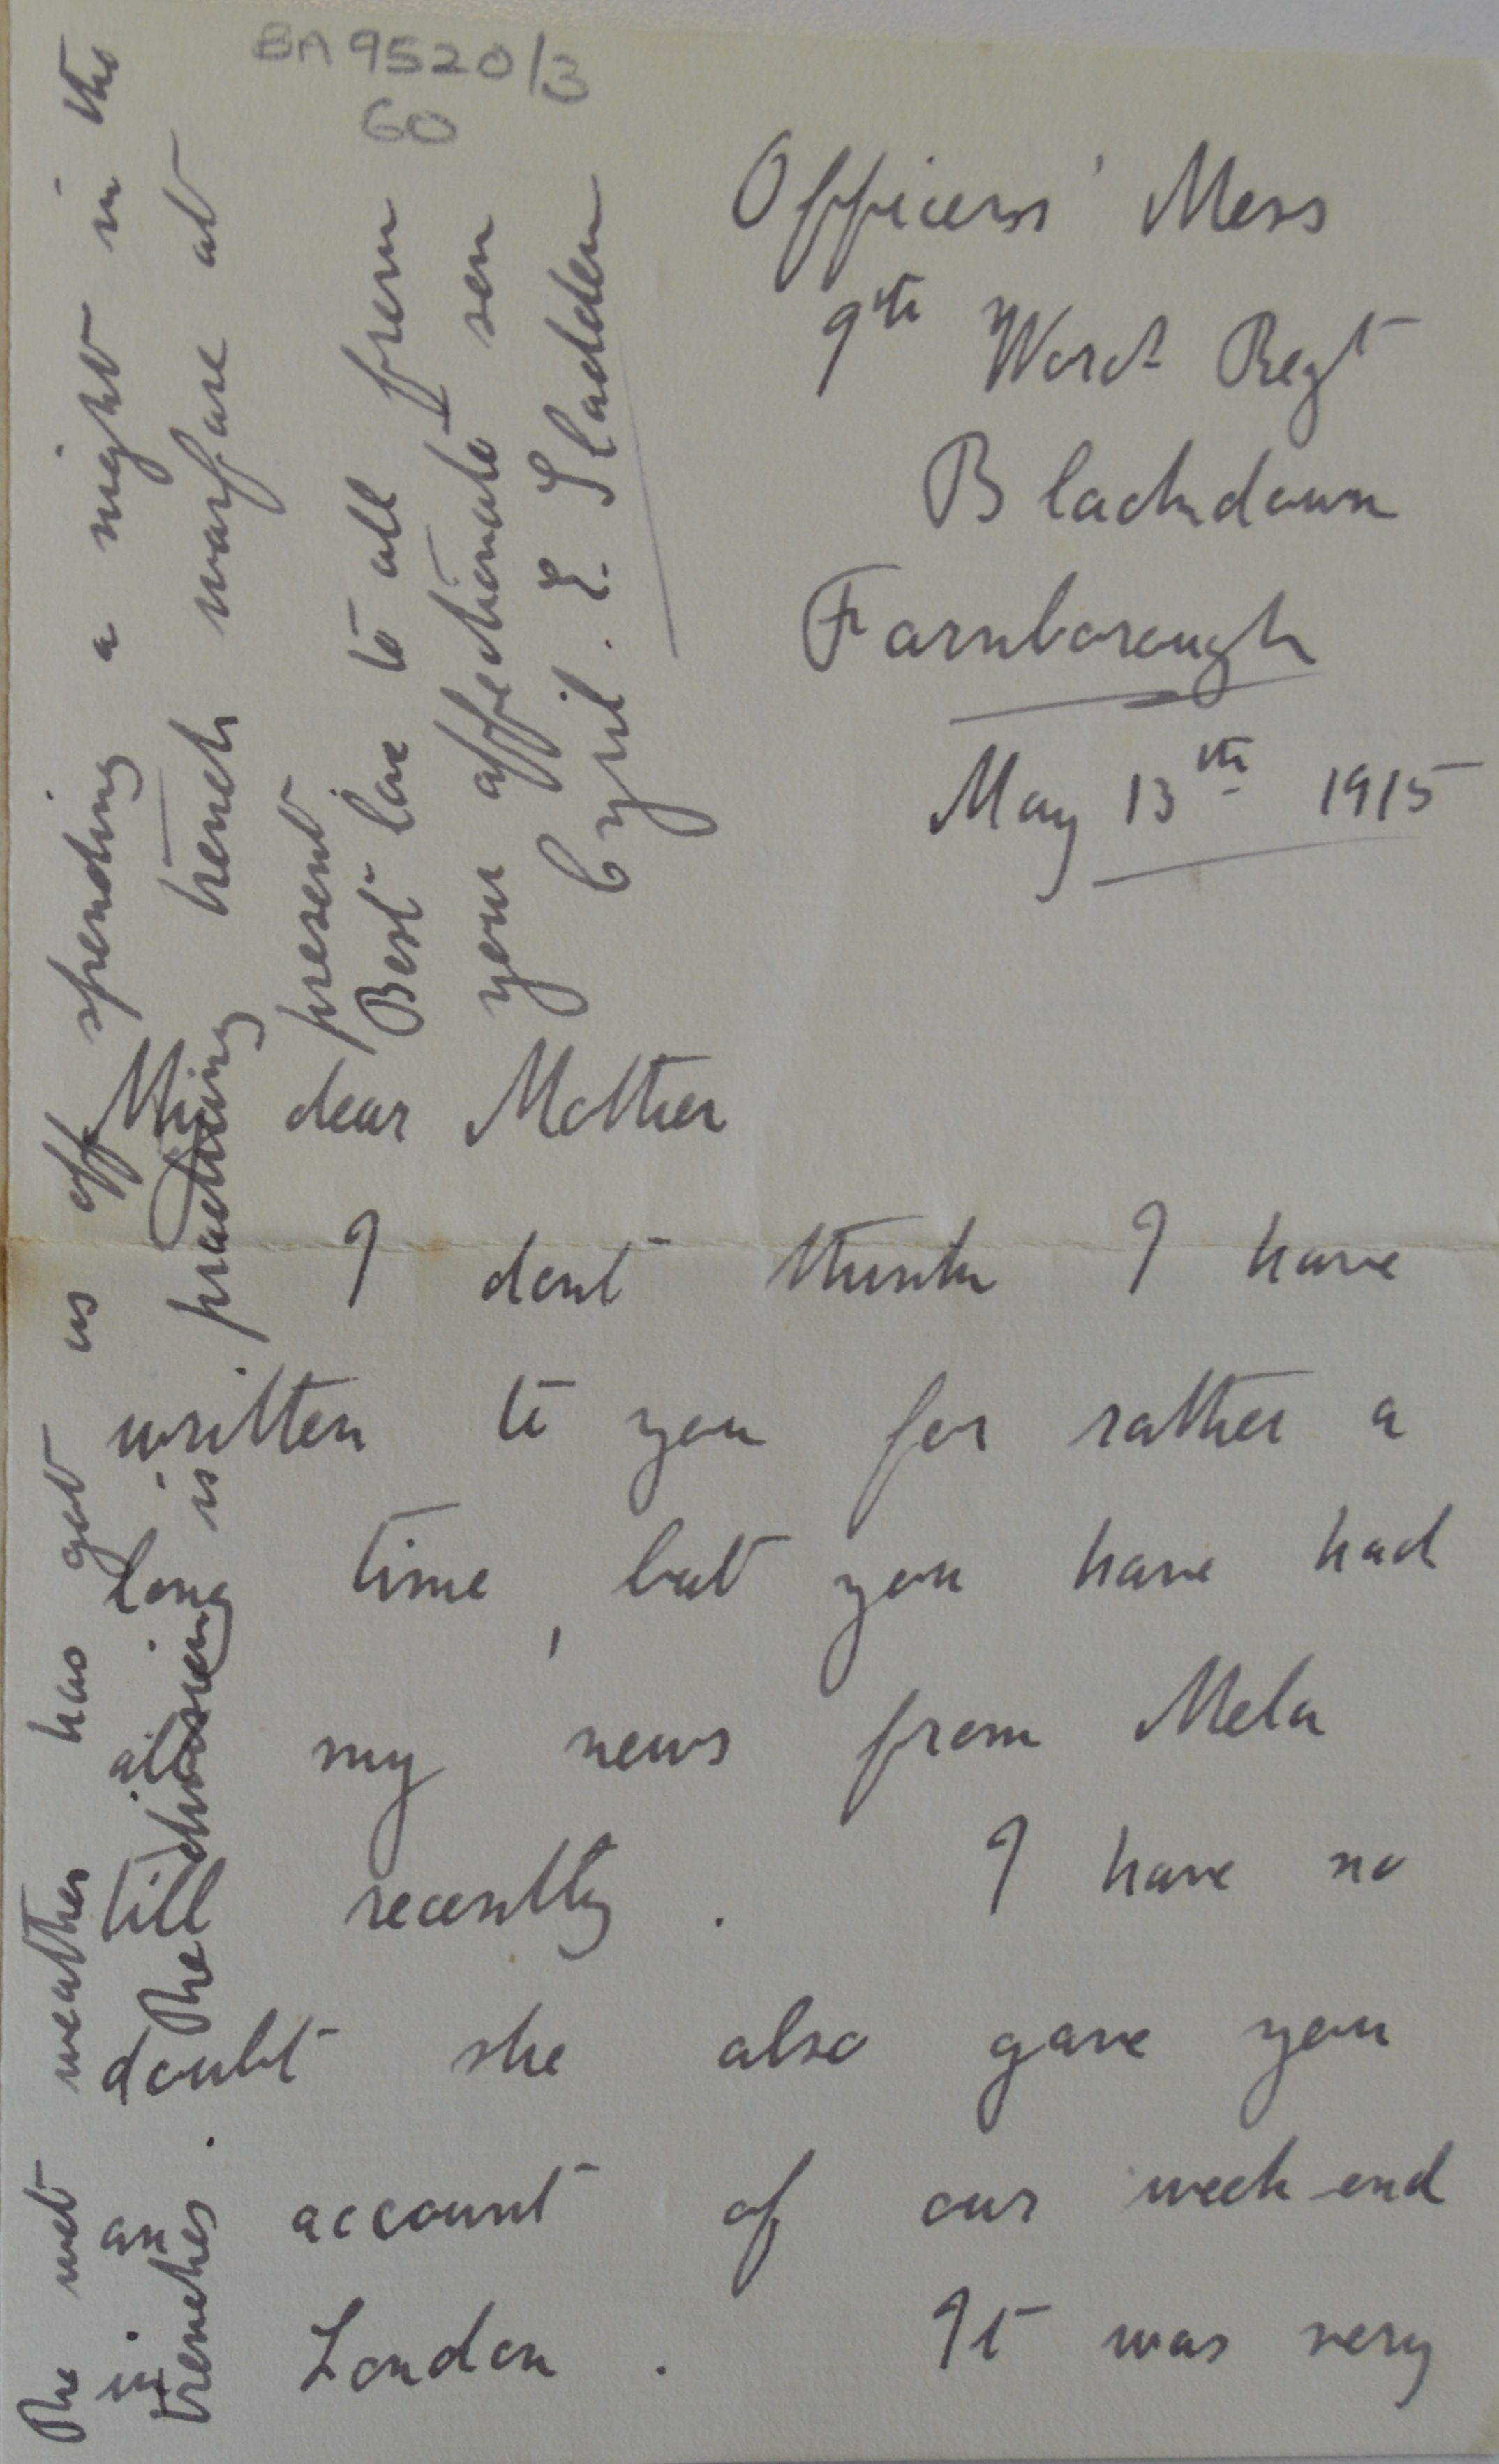 BA 9520/3
60
Officers' Mess
9th Worct Regt
Blackdown
Farnborough
May 13th 1915
My dear Mother
I dont think I have
written to you for rather a
long time, but you have had
all my news from Mela
till recently. I have no
doubt she also gave you
an account of our week-end
in London. It was very
The wet weather has got us off spending a night in the
trenches. The division is practising trench warfare at
present
Best love to all from
your affectionate son
Cyril. E. Sladden